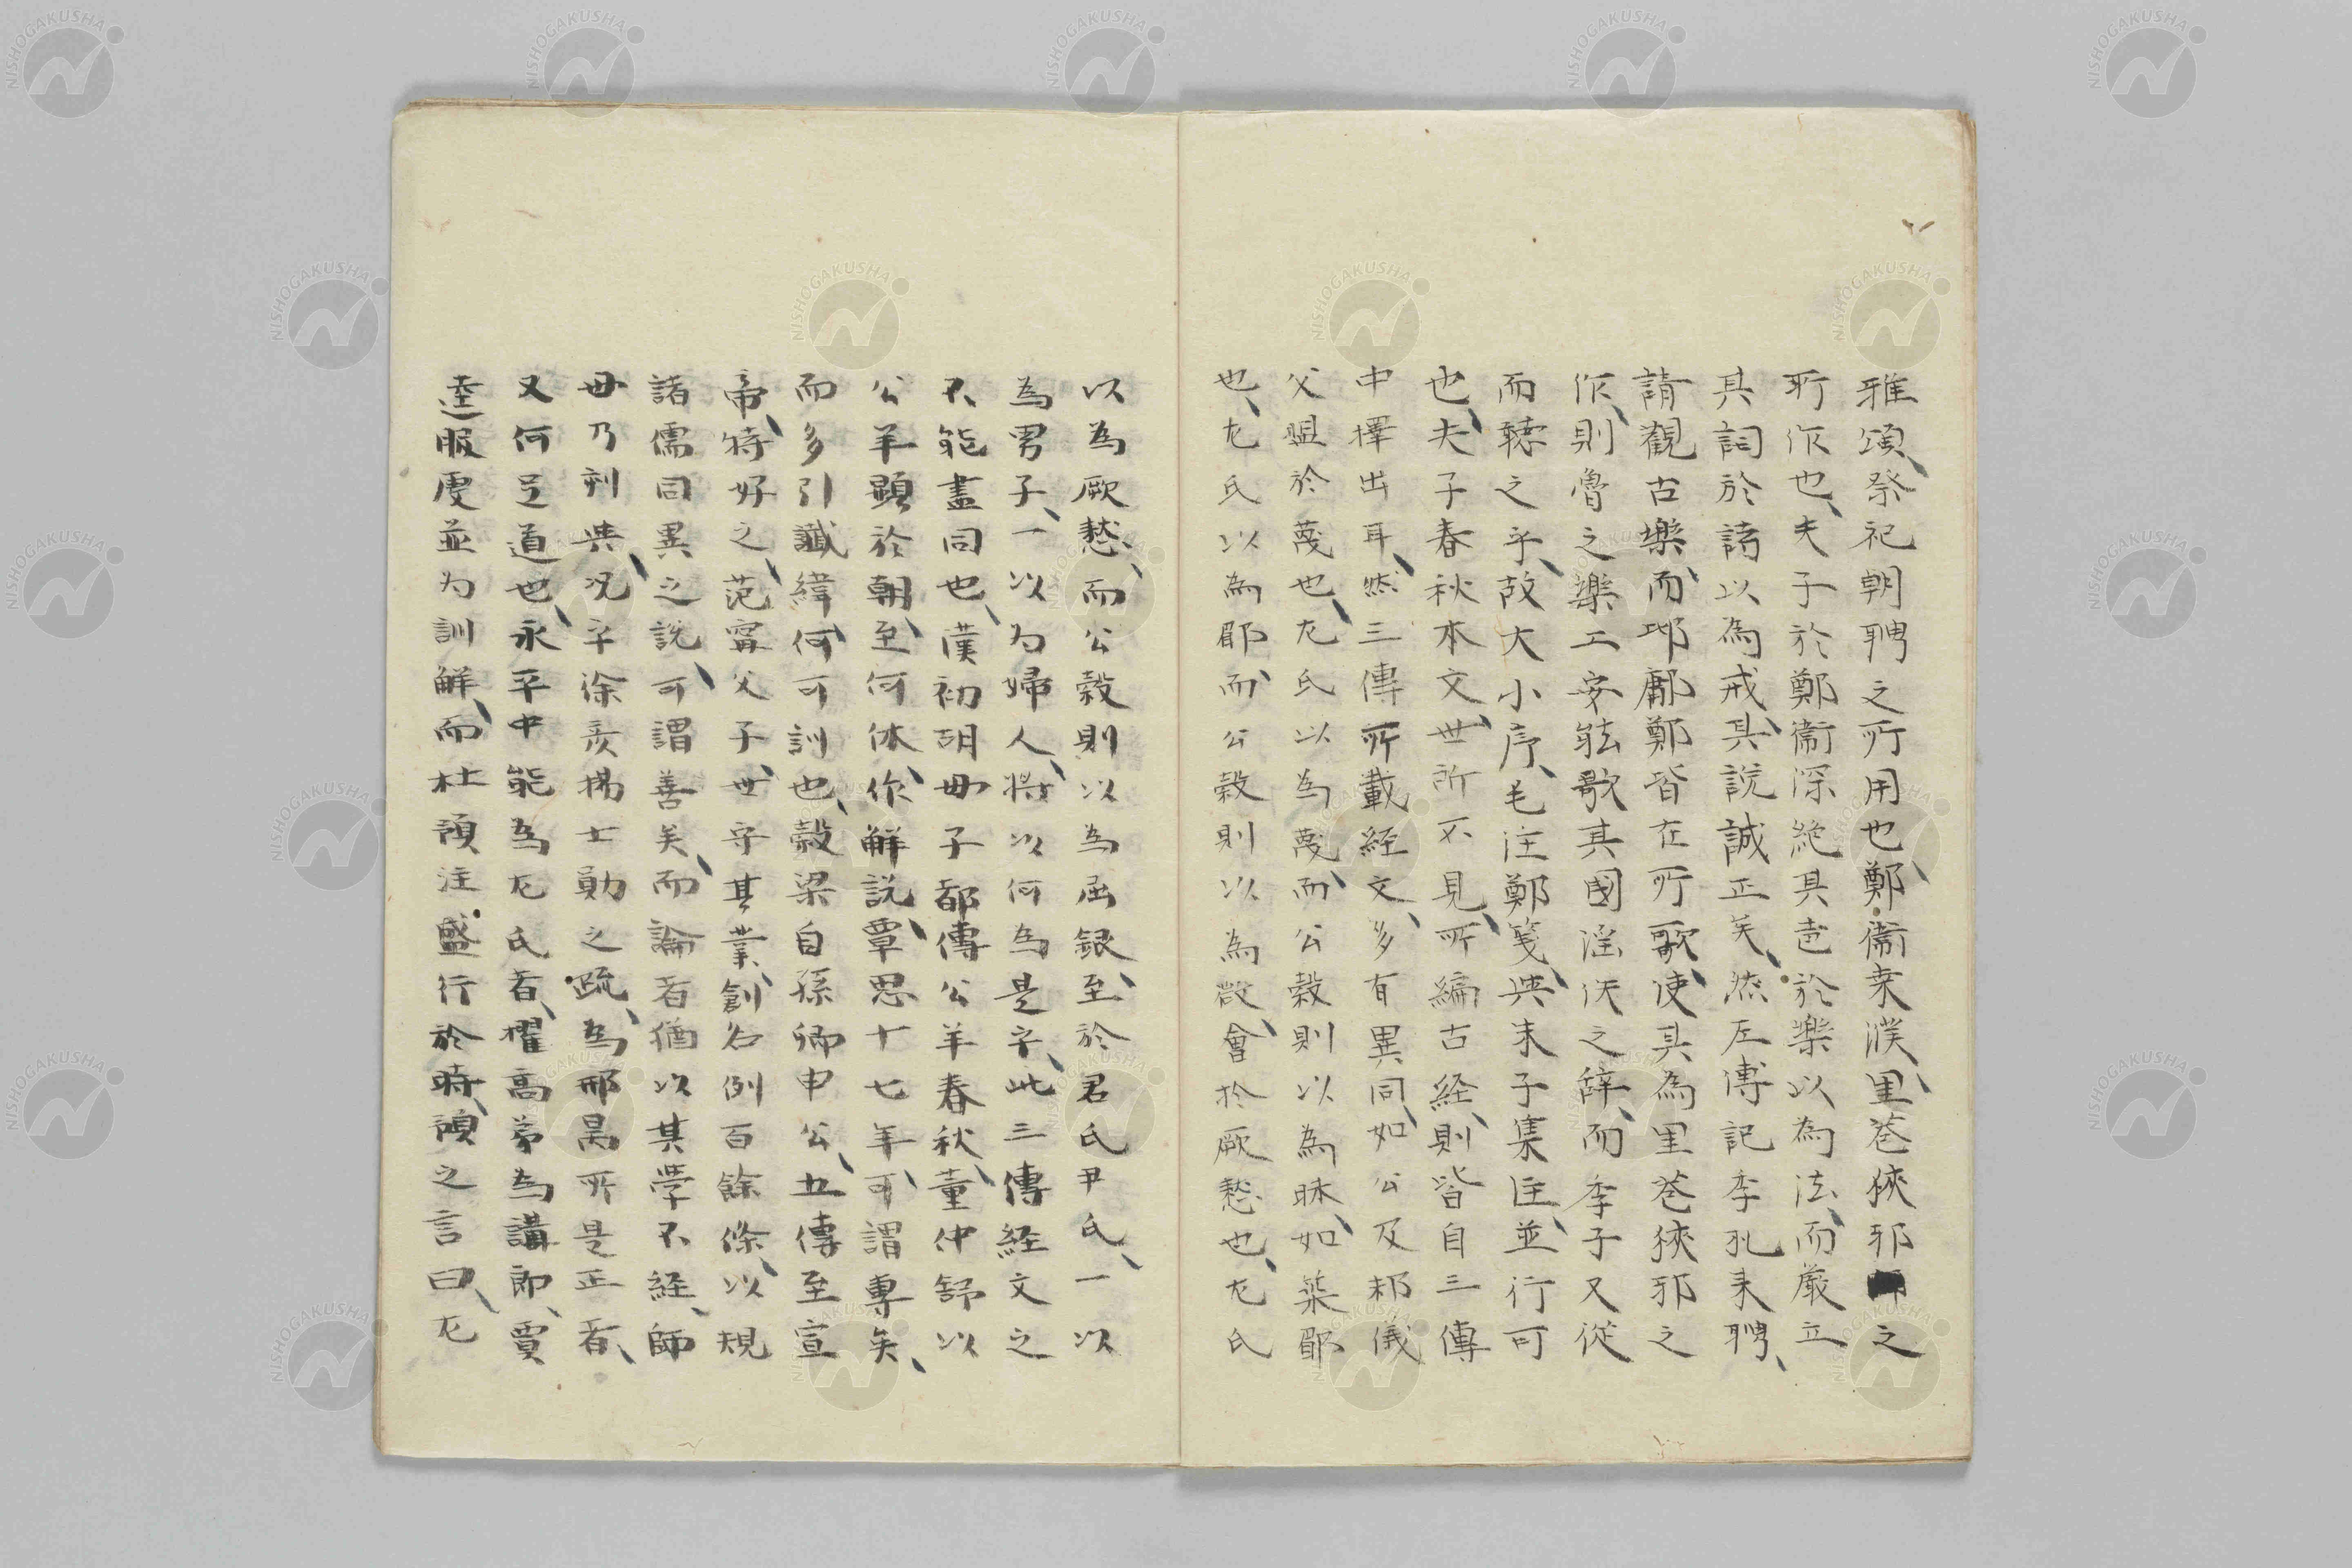 雅頌、祭祀朝聘之所用也、鄭衞桒濮、里巷狹邪之
所作也、夫子於鄭衞深絶其声於樂以為法、而嚴立
其詞於詩以為戒、其説誠正矣、然左傳記季札来聘、
請觀古樂、而邶鄘鄭皆在所歌、使其為里巷狹邪之
作、則魯之樂工安能歌其國淫泆之辞、而季子又從
而聽之乎、故大小序、毛注鄭箋、與朱子集註、並行可
也、夫子春秋本文、世所不見、所編古経、則皆自三傳
中擇出耳、然三傳所載経文、多有異同、如公及邾儀
父盟於蔑也、左氏以為蔑、而公穀則以為眛、如築郿
也、左氏以為郿、而公穀則以為微、會於厥憖也、左氏
以為厥憖、而公穀則以為屈銀、至於君氏尹氏、一以
為男子、一以为婦人、将以何為是乎、此三傳経文之
不能盡同也、漢初胡毋子都傳公羊春秋、董仲舒以
公羊顕於朝、至何休、作解説、覃思十七年、可謂専矣、
而多引讖緯、何可訓也、穀梁自孫卿申公、五傳至宣
帝、特好之、范甯父子、世守其業、創名例百餘條、以規
諸儒同異之説、可謂善矣、而論者猶以其學不経、師
毋乃刺與、况乎徐彦揚士勛之疏、為邢昺所是正者、
又何足道也、永平中能為左氏者、擢高第為講郎、賈
逵服虔並为訓解、而杜預注盛行於時、預之言曰、左